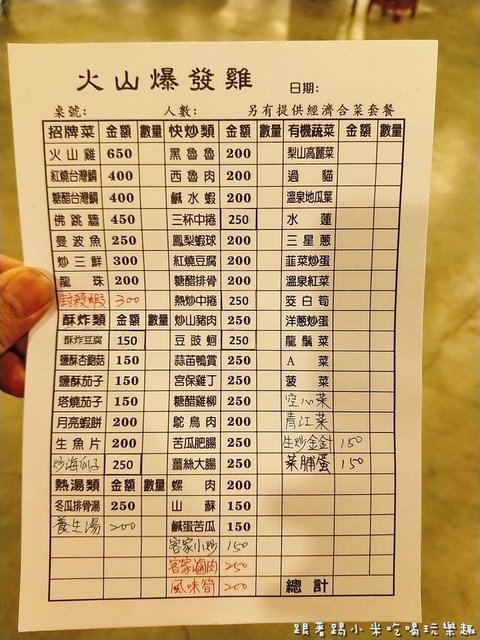 火山爆發雞
日期:
桌號: 人數: 另有提供經濟合菜套餐
招牌菜 金額 數量 快炒類 金額 數量 有機蔬菜 金額 數量
火山雞 650 黑魯魯 200 梨山高麗菜
紅燒台灣鯛 400 西魯肉 200 過貓
糖醋台灣鯛 400 鹹水蝦 200 溫泉地瓜葉
佛跳牆 450 三杯中捲 250 水蓮
曼波魚 250 鳳梨蝦球 200 三星蔥
炒三鮮 300 紅燒豆腐 200 韮菜炒蛋
龍珠 200 糖醋排骨 200 溫泉紅菜
封殺蝦 300 熱炒中捲 250 筊白筍
酥炸類 金額 數量 炒山豬肉 250 洋蔥炒蛋
酥炸豆腐 150 豆豉蚵 250 龍鬚菜
鹽酥杏鮑菇 150 蒜苗鴨賞 250 A菜
鹽酥茄子 150 宮保雞丁 250 菠菜
塔燒茄子 150 糖醋雞柳 250 空心菜
月亮蝦餅 200 鴕鳥肉 250 青江菜
生魚片 200 苦瓜肥腸 250 生炒金針 150
炒海瓜子 250 薑絲大腸 250 菜脯蛋 150
熱湯類 金額 數量 螺肉 200
冬瓜排骨湯 250 山蘇 150
養生湯 200 鹹蛋苦瓜 150
客家小炒 150
客家滷肉 250
風味筍 200 總計
跟著踢小米吃喝玩樂趣